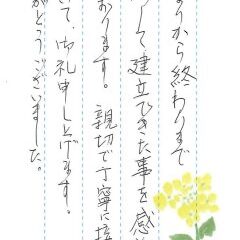 まりから終わりまで
して建立できた事を感
ります。親切で丁寧に接
いて、御礼申し上げます。
がとうございました。